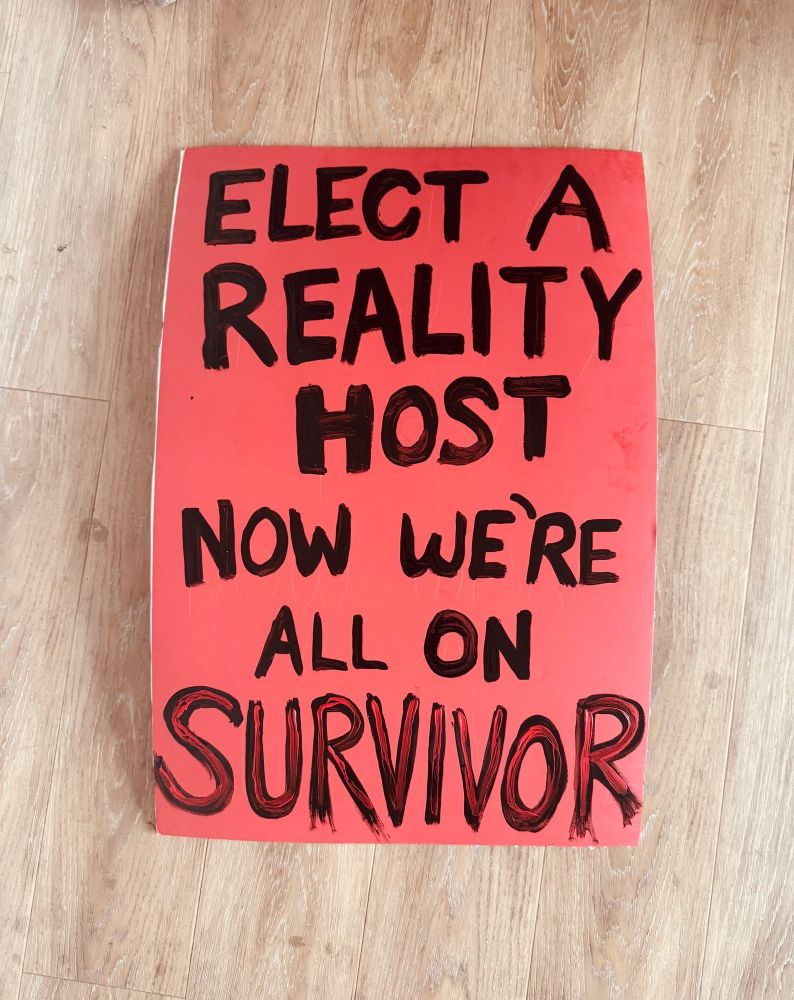 ELECT A
REALITY
HOST
NOW WE'RE
ALL ON
SURVIVOR